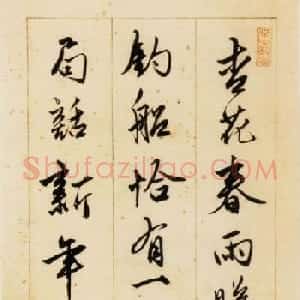 杏花春雨
钓船恰有一
局話新年
Shufaziliao.com